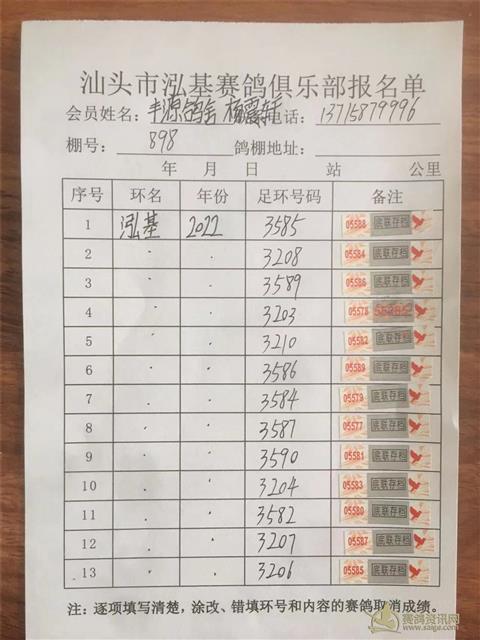 汕头市泓基赛鸽俱乐部报名单
会员姓名：丰源鸽舍 杨震轩 电话：13715879996
棚号：898 鸽棚地址：
年 月 日 站 公里
序号 环名 年份 足环号码 备注
1 泓基 2022 3585 05588 底联存档
2 · · 3208 05584 底联存档
3 · · 3589 05586 底联存档
4 · · 3203 05578
5 · · 3210 05582 底联存档
6 · · 3586 05589 底联存档
7 · · 3584 05579 底联存档
8 · · 3587 05577 底联存档
9 · · 3590 05581 底联存档
10 · · 3204 05583 底联存档
11 · · 3582 05580 底联存档
12 · · 3207 05587 底联存档
13 · · 3206 05585 底联存档
注：逐项填写清楚，涂改、错填环号和内容的赛鸽取消成绩。
赛鸽资讯网
www.saige.com